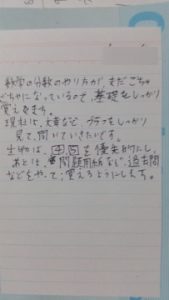 数学の分数のやり方が、まだごちゃ
ごちゃになっているので、基礎をしっかり
覚えます。
現社は、文章など、グラフをしっかり
見て、聞いていきたいです。
生物は、を優先的にし、
あとは、問題用紙など、過去問
などをやって、覚えるようにします。